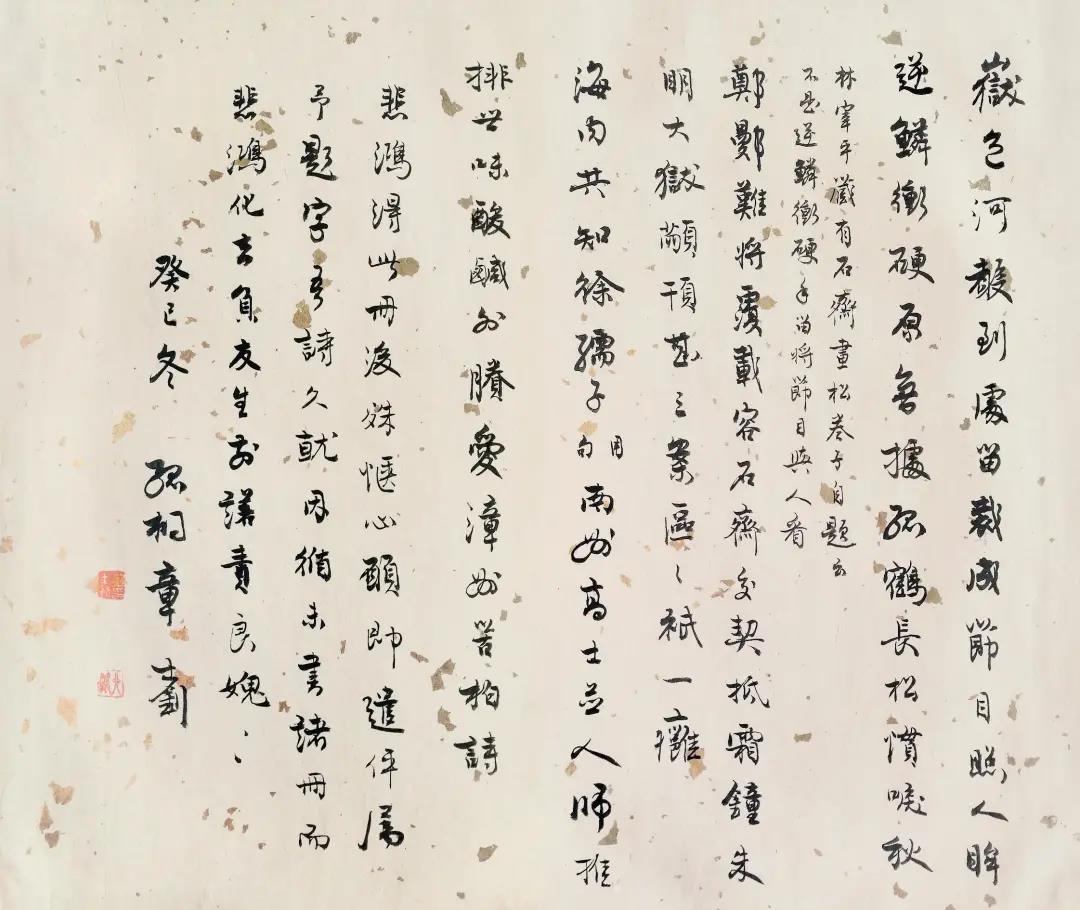 嶽色河聲到處留裁成節目照人眸
逆鱗衝硬原無據孤鶴長松慣唳秋
林宰平藏有石齋畫松卷子自題云
不是逆鱗衝硬手留將節目與人看
鄭鄤難將覆載容石齋交契抵霜鐘朱
明大獄顓頇甚三案區〻祇一癰
海內共知徐孺子用句南州高士並人師推
排世味酸鹹外賸愛漳州苦柏詩
悲鴻得此冊後殊愜心願即進伻屬
予題字吾詩久就因循未書諸冊而
悲鴻化去負友生前諈責良媿〻
癸巳冬 孤桐章士釗